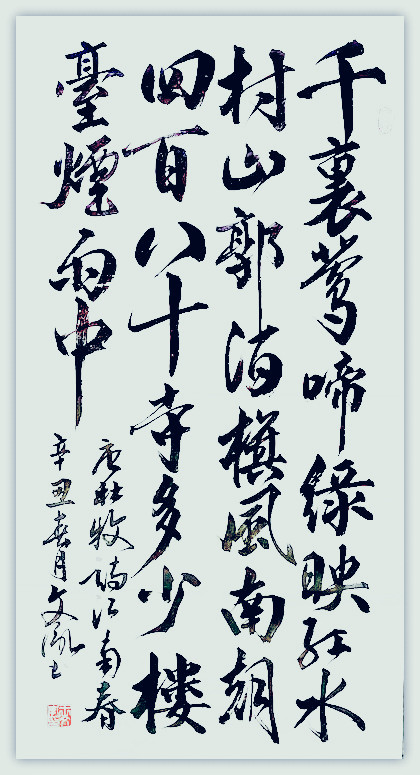 千裏莺啼绿映红水
村山郭酒旗風南朝
四百八十寺多少楼
臺煙雨中
唐杜牧诗江南春
辛丑春月文